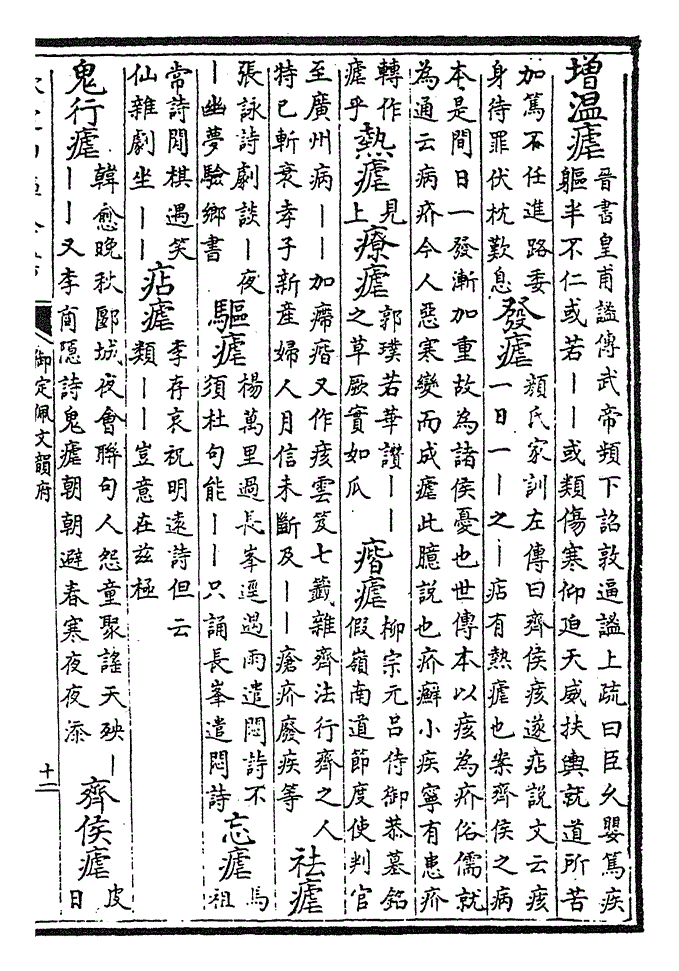 增溫瘧
晉書皇甫謐傳武帝頻下詔敦逼謐上疏曰臣久嬰篤疾
軀半不仁或若丨丨或類傷寒仰迫天威扶輿就道所苦
加篤不任進路委
身待罪伏枕歎息
發瘧
顏氏家訓左傳曰齊侯痎遂痁說文云痎
一日一丨之丨痁有熱瘧也案齊侯之病
本是間日一發漸加重故為諸侯憂也世傳本以痎為疥俗儒就
為通云病疥今人惡寒變而成瘧此臆說也疥癬小疾寧有患疥
轉作
瘧乎
熱瘧
見
上
療瘧
郭璞若華讚丨丨
之草厥實如瓜
㾬瘧
柳宗元呂侍御恭墓銘
假嶺南道節度使判官
至廣州病丨丨加㿃㾬又作痎雲笈七籤雜齊法行齊之人
特已斬衰孝子新産婦人月信未斷及丨丨瘡疥廢疾等
祛瘧
張詠詩劇談丨夜
丨幽夢驗鄉書
驅瘧
楊萬里過長峯逕遇雨遣悶詩不
須杜句能丨丨只誦長峯遣悶詩
忘瘧
馬
祖
常詩閒棋遇笑
仙雜劇坐丨丨
痁瘧
李存哀祝明遠詩但云
類丨丨豈意在茲極
鬼行瘧
韓愈晚秋郾城夜會聯句人怨童聚謠天殃丨
丨丨又李商隱詩鬼瘧朝朝避春寒夜夜添
齊侯瘧
皮
日
御定佩文韻府
十二